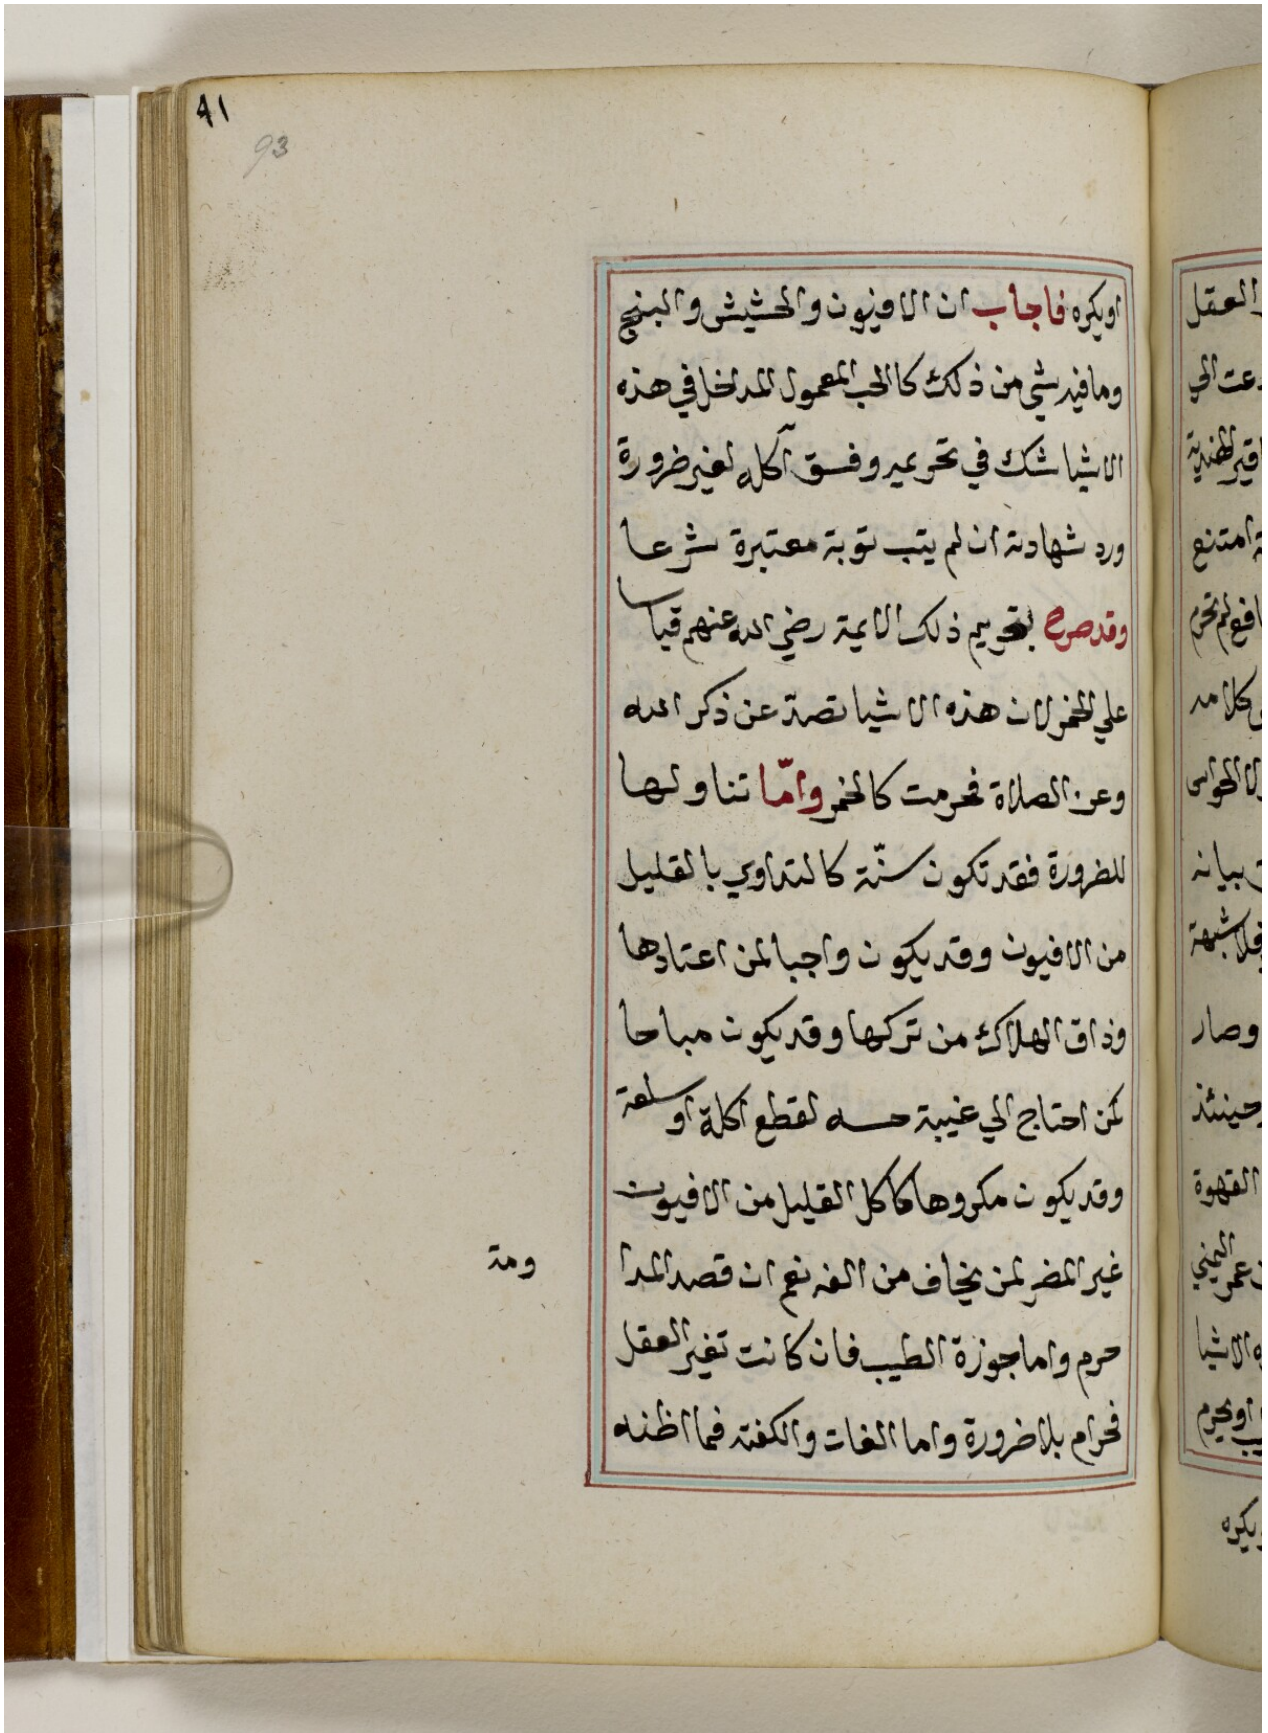 ٩١
93
او يكره فاجاب ان الافيون والحشيش والبنج
وما فيه شي من ذلك كالحب المعمول المداخل في هذه
الاشيا شك في تحريمه وفسق آكله لغير ضرورة
ورد شهادته ان لم يتب توبة معتبرة شرعا
وقد صرح بتحريم ذلك الايمة رضي الله عنهم قياسا
علي الخمر لان هذه الاشيا تصد عن ذكر الله
وعن الصلاة فحرمت كالخمر وامّا تناولها
للضرورة فقد تكون سنّة كالتداوي بالقليل
من الافيون وقد يكون واجبا لمن اعتادها
وذاق الهلاك من تركها وقد يكون مباحا
لمن احتاج الي غيبة حسه لقطع اكلة او سلعة
وقد يكون مكروها كاكل القليل من الافيون
غير المضر لمن يخاف من الفه نعم ان قصد المدا
ومة
حرم واما جوزة الطيب فان كانت تغير العقل
فحرام بلا ضرورة واما القات والكفته فما اظنه
العقل
امتنع
كلامه
الحواس
بيانه
فلا شبهة
وصار
حينئذ
القهوة
عمر اليمني
الاشيا
او يحرم
يكره